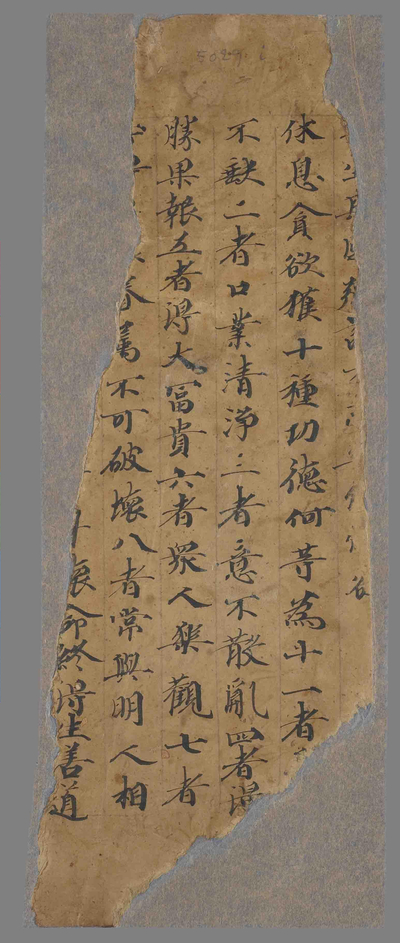 休息貪欲獲十種功德何等為十一者
不缺二者口業清淨三者意不散亂四者得
勝果報五者得大冨貴六者眾人樂觀七者
眷屬不可破壞八者常與明人相
命終得生善道